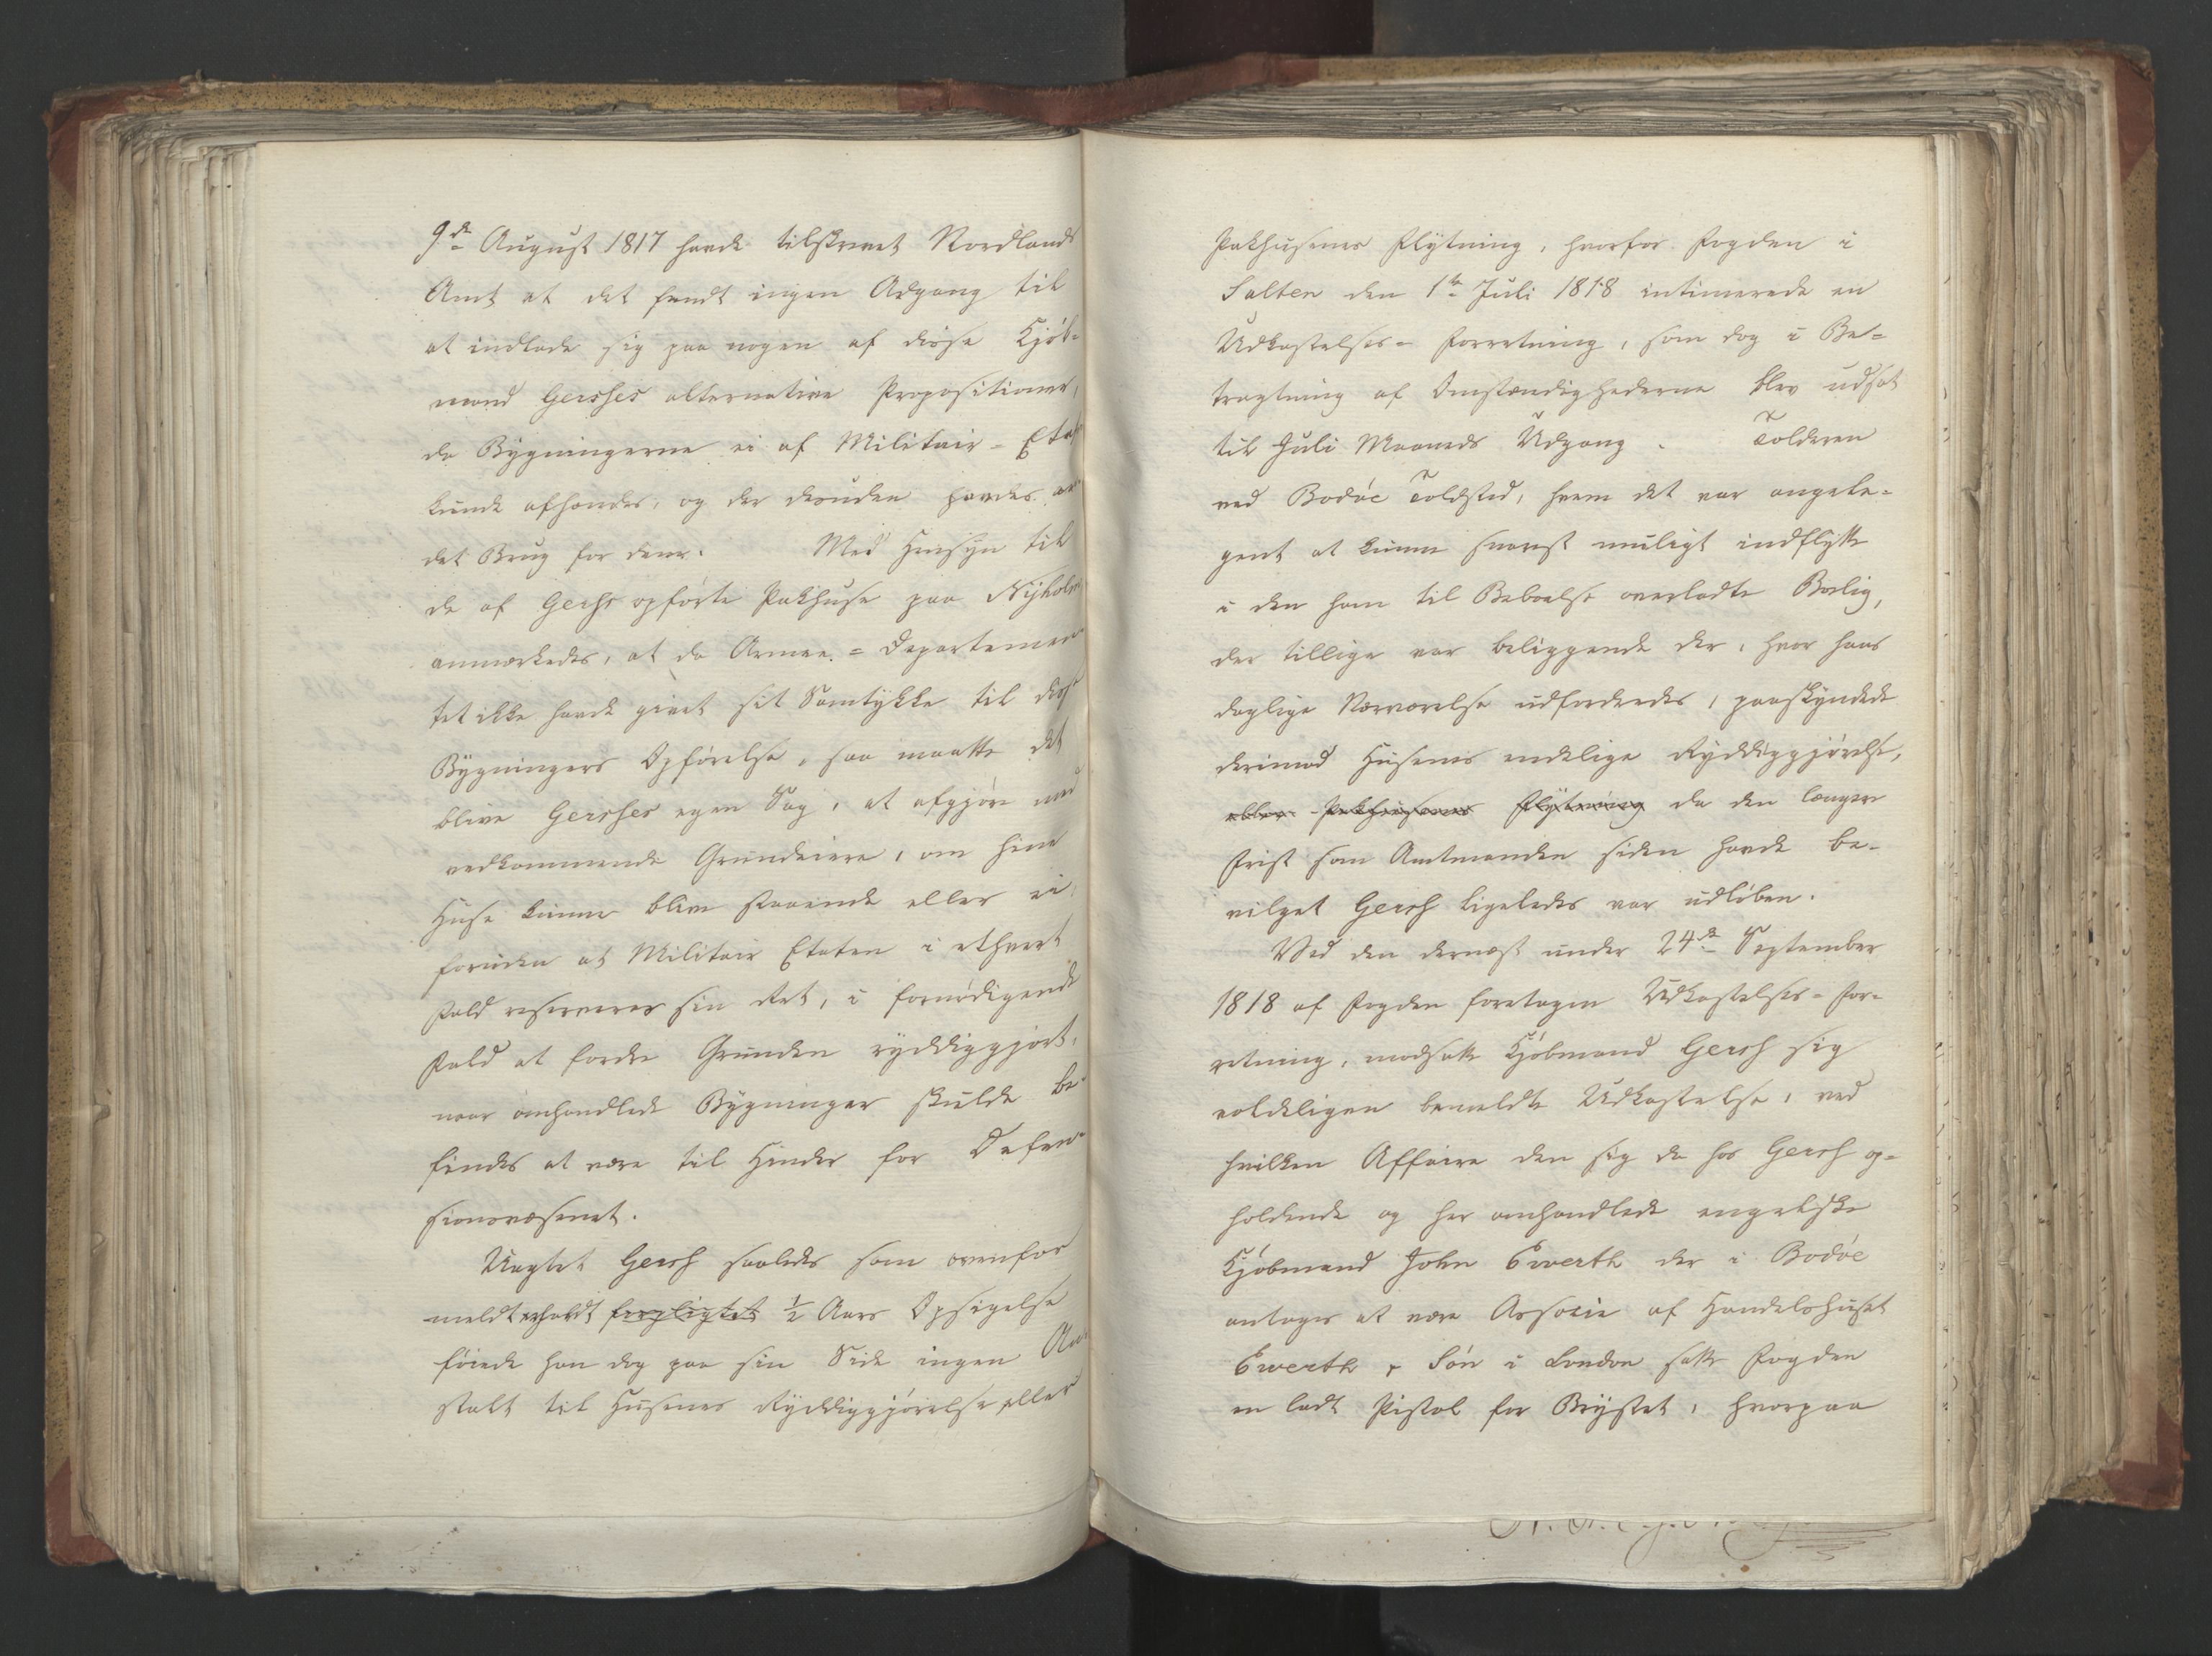 9de August 1817 havde tilskrevet Nordlands
Amt at det fandt ingen Adgang til
at indlade sig paa nogen af disse Kjöb-
mand Gershes alternative Propositioner,
da Bygningerne ei af Militair-Etaten
kunde afhændes, og der desuden havdes an-
det Brug for dem. Med Hensyn til
de af Gersh opførte Pakhuse paa Nyholmen
anmærkedes, at da Armee-Departemen-
tet ikke havde givet sit Samtykke til disse
Bygningers Opførelse, saa maatte det
blive Gershes egen Sag, at afgjøre med
vedkommende Grundeiere, om hine
Huse kunne blive staaende eller ei,
foruden at Militair Etaten i ethvert
Fald reserverer sin Ret, i fornødigende
Fald at fordre Grunden ryddiggjort,
naar omhandlede Bygninger skulde be-
findes at være til Hinder for Defen-
sionsvæsenet.
Uagtet Gersh saaledes som ovenfor
meldt erholdt ½ Aars Opsigelse
føiede han dog paa sin Side ingen An-
stalt til Husenes Ryddiggjørelse eller
Pakhusenes Flytning, hvorfor Fogden i
Salten den 1ste Juli 1818 intimerede en
Udkastelses-Forretning, som dog i Be-
tragtning af Omstændighederne blev udsat
til Juli Maaneds Udgang. Tolderen
ved Bodøe Toldsted, hvem det var angele-
gent at kunne snarest muligt indflytte
i den ham til Beboelse overladte Bolig,
der tillige var beliggende der, hvor hans
daglige Nærværelse udfordredes, paaskyndede
derimod Husenes endelige Ryddiggjørelse,
eller Pakhusenes Flytning da den længere
Frist som Amtmanden siden havde be-
vilget Gersh ligeledes var udløben.
Ved den dernæst under 24de September
1818 af Fogden foretagen Udkastelses-For-
retning, modsatte Kjøbmand Gersh sig
voldeligen bemeldte Udkastelse, ved
hvilken Affaire den sig da hos Gersh op-
holdende og her omhandlede engelske
Kjøbmand John Everth der i Bodøe
antages at være Associe af Handelshuset
Everth & Søn i London satte Fogden
en ladt Pistol for Brystet, hvorpaa